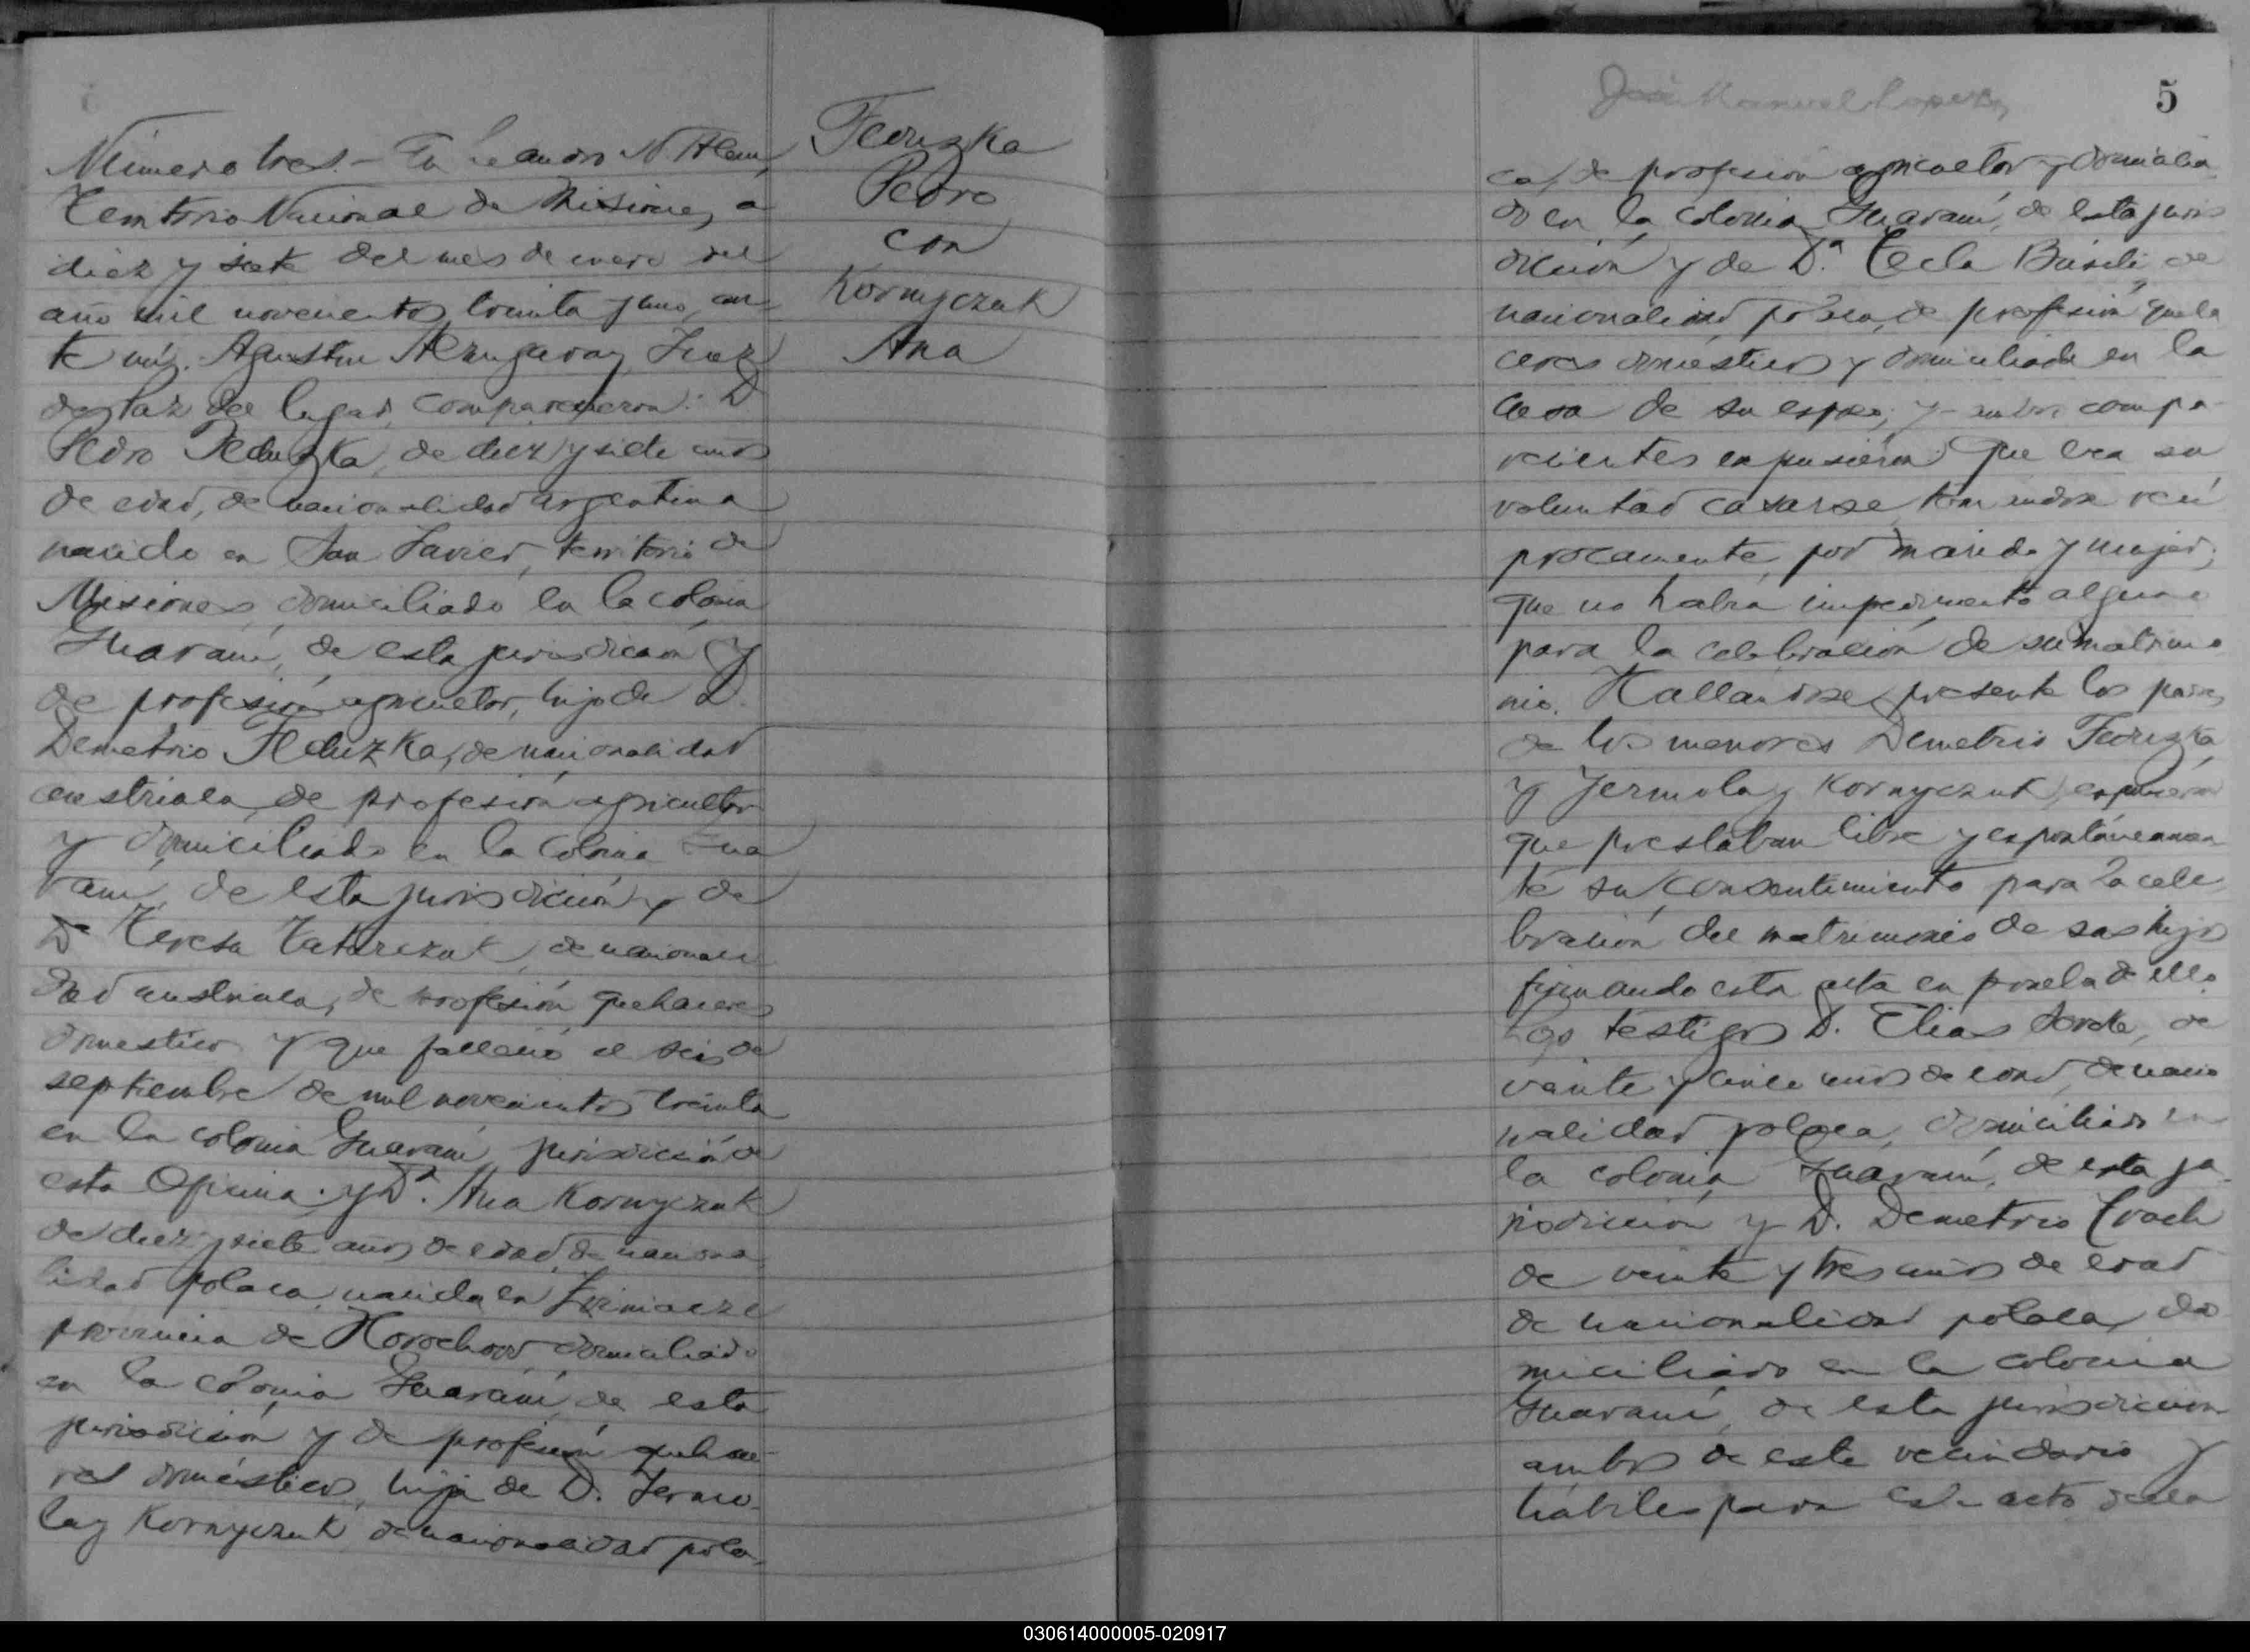 Número tres.- En Leandro N. Alem,
Territorio Nacional de Misiones, a
diez y siete del mes de enero del
año mil novecientos treinta y uno, an
te mí, Agustin Alzugaray Juez
de Paz del lugar, comparecieron: D.
Pedro Feduzka, de diez y siete años
de edad, de nacionalidad argentina
nacido en San Javier, territorio de
Misiones, domiciliado en la colonia
Guaraní, de esta jurisdicción y
de profesión agricultor, hijo de D.
Demetrio Feduzka, de nacionalidad
austriaca, de profesión agricultor
y domiciliado en la Colonia Gua
raní, de esta jurisdicción y de
Dª Teresa Tatarczuk, de nacionali
dad austriaca, de profesión quehaceres
domésticos y que falleció el seis de
septiembre de mil novecientos treinta
en la colonia Guaraní jurisdicción de
esta Oficina; y Dª. Ana Kornyczuk
de diez y siete años de edad, de naciona
lidad polaca, nacida en
provincia de Horochow, domiciliada
en la colonia Guaraní, de esta
jurisdicción y de profesión quehace-
res domésticos, hija de D. Jermo-
lay Kornyczuk de nacionalidad pola-
Feduzka
Pedro
con
Kornyczuk
Ana
José Manuel Lopez
5
ca, de profesión agricultor y domicilia
do en la colonia Guaraní, de esta juris
dicción y de Dª. Tecla Búsili, de
nacionalidad polaca, de profesión queha
ceres domésticos y domiciliada en la
casa de su esposo; y ambos compa-
recientes expusieron: Que era su
voluntad casarse, tomandose recí
procamente, por marido y mujer;
que no había impedimento alguno
para la celebración de su matrimo
nio. Hallandose presente los padres
de los menores Demetrio Feduzka
y Jermolay Kornyczuk, expusieron
que prestaban libre y espontáneamen
te su consentimiento para la cele
bración del matrimonio de sus hijos
firmando esta acta en prueba de ello.
Los testigos D. Elias, de
veinte y cinco años de edad, de nacio
nalidad polaca, domiciliado en
la colonia Guaraní, de esta ju
risdicción y D. Demetrio Troch
de veinte y tres años de edad
de nacionalidad polaca, do
miciliado en la colonia
Guaraní, de esta jurisdicción
ambos de este vecindario y
hábiles para este acto, decla
030614000005-020917